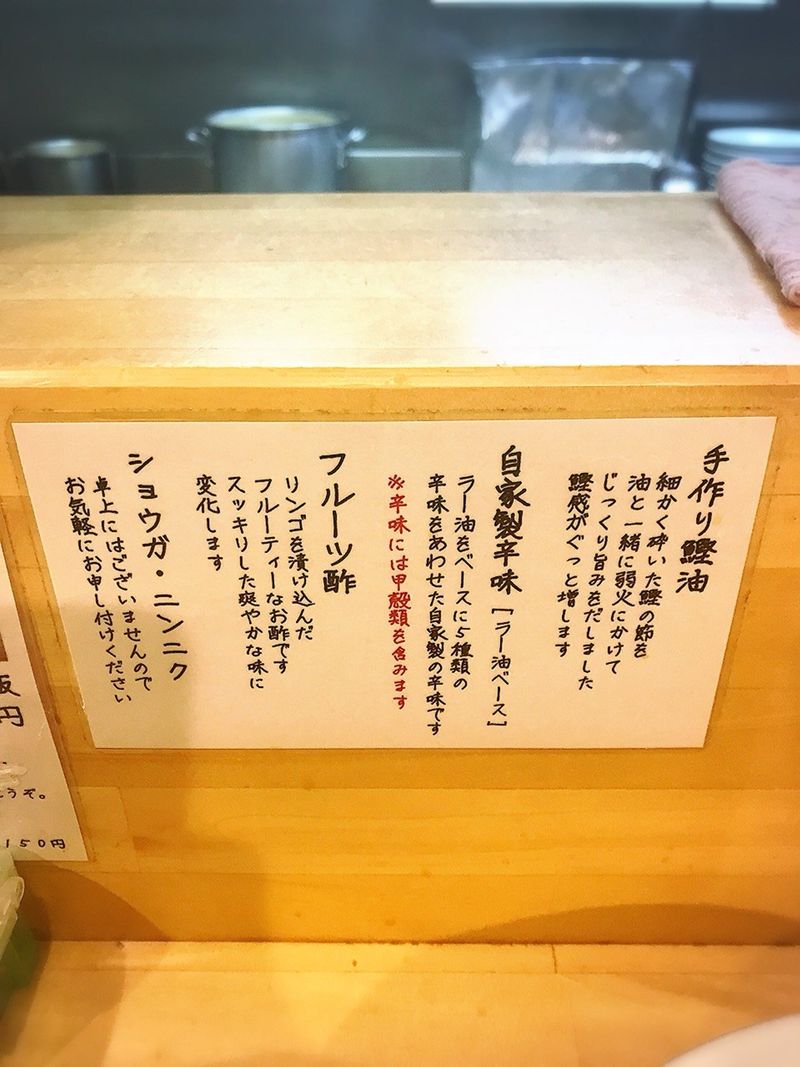 手作り鰹油
細かく砕いた鰹の節を
油と一緒に弱火にかけて
じっくり旨みをだしました
鰹感がぐっと増します
自家製辛味［ラー油ベース］
ラー油をベースに5種類の
辛味をあわせた自家製の辛味です
※辛味には甲殻類を含みます
フルーツ酢
リンゴを漬け込んだ
フルーティーなお酢です
スッキリした爽やかな味に
変化します
ショウガ・ニンニク
卓上にはございませんので
お気軽にお申し付けください
円
うぞ。
150円